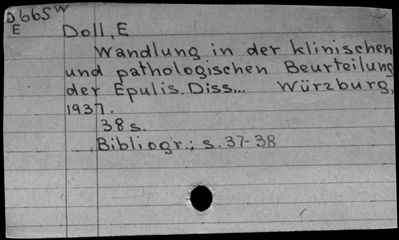 D665w
E
Doll, E
Wandlung in der klinischen
und pathologischen Beurteilung
der Epulis. Diss... Würzburg,
1937.
38 s.
Bibliogr.; s. 37-38